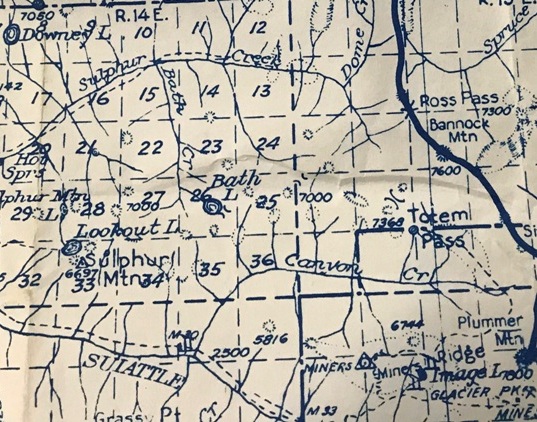 7060
R.14 E.
Downey L.
10
11
12
Dome Cr
Spruce
Sulphur
Creek
142
17
16
15
14
13
Bath
Cr
Ross Pass
7300
Bannock
Mtn
7600
20
21
22
23
24
Hot
Sprs
phur Mtn
29
L
28
27
7050
26
Bath
L
25
7000
Lookout L.
7368
Totem
Pass
Si
Sulphur
Mtn
6697
32
33
34
35
36
Canyon
Cr
6744
Plummer
Mtn
M 30
2300
5816
SUIATTLE
MINERS
Mine
Ridge
Image L.
7800
GLACIER PK
Grassy Pt
Cr
M 33
MINE